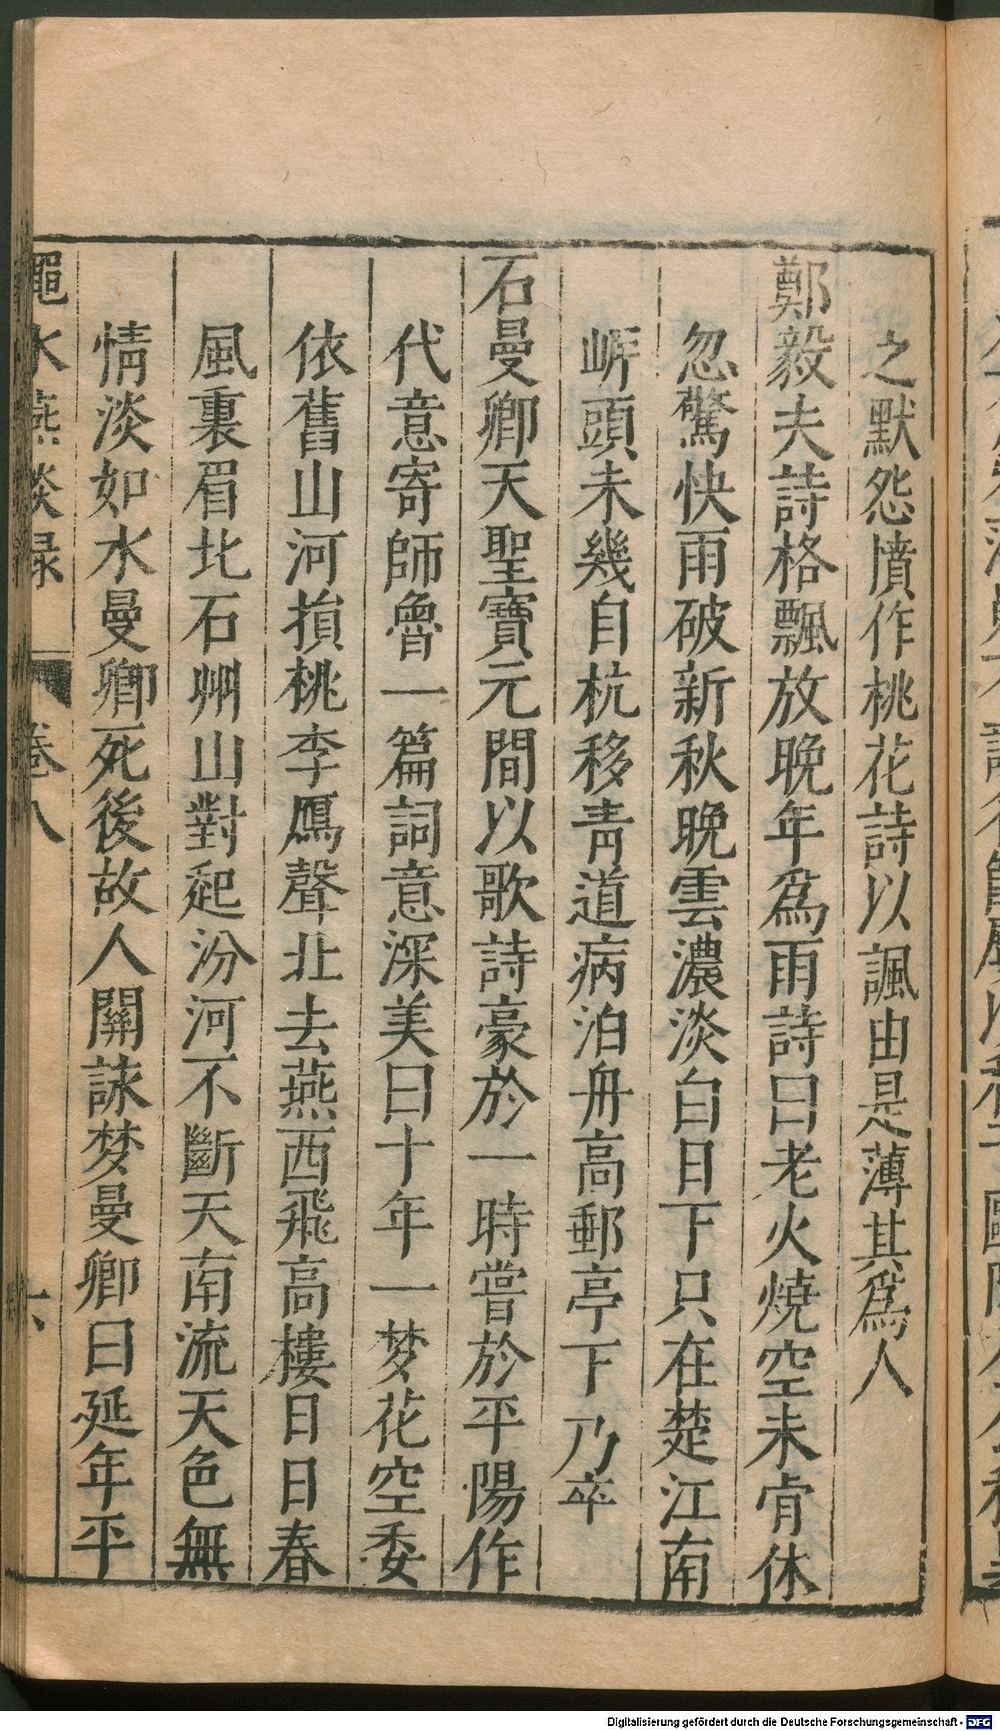 之默怨憤作桃花詩以諷由是薄其爲人
鄭毅夫詩格飄放晚年爲雨詩曰老火燒空未肯休
忽驚快雨破新秋晚雲濃淡白日下只在楚江南
岍頭未幾自杭移青道病泊舟高郵亭下乃卒
石曼卿天聖寶元間以歌詩豪於一時嘗於平陽作
代意寄師魯一篇詞意深美曰十年一梦花空委
依舊山河損桃李鴈聲北去燕西飛高樓日日春
風裏眉北石州山對起汾河不斷天南流天色無
情淡如水曼卿死後故人關詠梦曼卿曰延年平
澠水燕談録
卷八
六
Digitalisierung gefördert durch die Deutsche Forschungsgemeinschaft - DFG